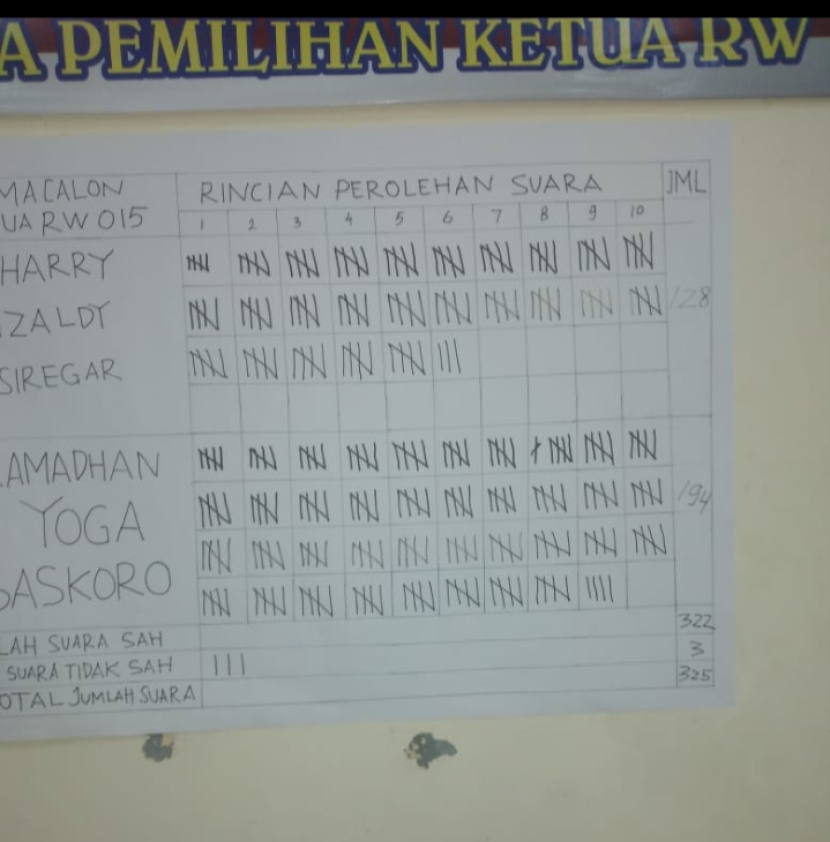 A PEMILIHAN KETUA RW
MA CALON RINCIAN PEROLEHAN SUARA JML
UA RW 015 1 2 3 4 5 6 7 8 9 10
HARRY
ZALDY 128
SIREGAR
AMADHAN
YOGA 194
BASKORO
LAH SUARA SAH 322
SUARA TIDAK SAH III 3
OTAL JUMLAH SUARA 325